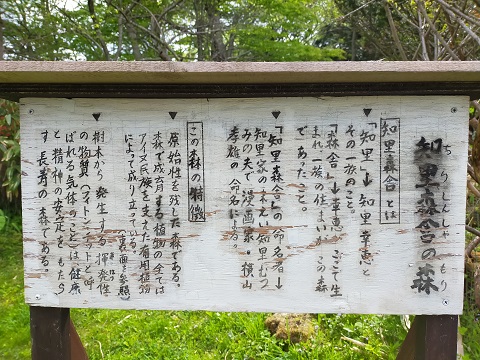 知里森舎の森
ちりしんしゃ もり
知里森舎とは
▼「知里」→知里幸恵と
その一族のこと。
「森舎」→幸恵がここで生
まれ一族の住まいがこの森
であったこと。
▼「知里森舎」の命名者→
知里家の本えの知里むつ
みの夫で漫画家・横山
孝雄の命名による。
この森の特徴
▼原始性を残した森である。
▼森で成育する植物の全ては
アイヌ民族を支えた有用植物
によって成り立っている。
(裏面を参照)
▼樹木から発生する揮発性
の物質(フィトンチッドと呼
ばれる気体のことは健康
と精神の安定をもたら
す長寿の森である。